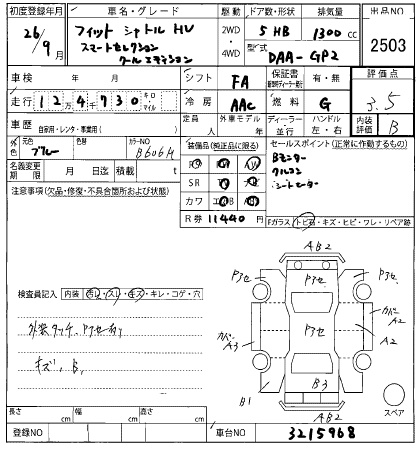 初度登録年月 車名・グレード 駆動 ドア数・形状 排気量 出品NO
26/9月 フィット シャトル HV 2WD 5 HB 1300cc 2503
スマートセレクション ・4WD 型式
クールエディション DAA-GP2
車検 年 月 シフト FA 保証書 有・無 評価点
走行 12万4千730 キロ・マイル 冷房 AAC 燃料 G 3.5
車歴 自家用・レンタ・事業用( ) 定員 人 外車モデル 年 ディーラー 並行 ハンドル 左・右 内装評価 B
外色 元色 ブルー 色替 カラーNO B606M
装備品(純正品に限る) セールスポイント(正常に作動するもの)
名義変更期限 月 日 積載 t
SR ナビ
カワ エアB
R券 11440円
Bモニター
クルコン
シートヒーター
注意事項(欠品・修復・不具合箇所および状態)
Fガラス トビ石・キズ・ヒビ・ワレ・リペア跡
検査員記入 内装 汚レ・スレ・キズ・キレ・コゲ・穴
キズ、B、
AB2
Pアセ Pアセ
カバーA3 Pアセ カバーA2
A2
B3
B1
AB2
スペア
長さ cm 幅 cm 高さ cm
登録NO 車台NO 3215968